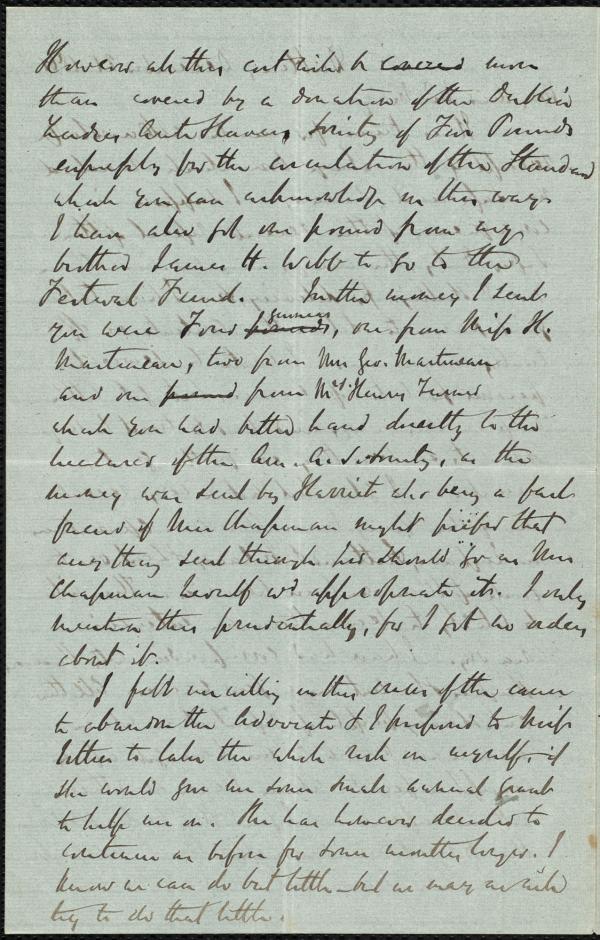 However all this cost will be covered more
than covered by a donation of the Dublin
Ladies Anti Slavery Society of Five Pounds
expressly for the circulation of the Standard
which you can acknowledge in this way
I have also got one pound from my
brother James H. Webb to go to the
Festival Fund. In the money I sent
you were Four pounds guineas, one from Miss H.
Martineau, two from Mrs Geo. Martineau
and one pound from Mrs. Henry Turner
which you had better hand directly to the
treasurer of the Am. A. S. Society, as the
money was sent by Harriet who being a fast
friend of Mrs Chapman might prefer that
any thing sent through her should go as Mrs
Chapman herself wd appropriate it. I only
mention this prudentially, for I got no orders
about it.
I felt unwilling in this crisis of the cause
to abandon the Advocate & I proposed to Miss
Estlin to take the whole risk on myself, if
she would give me some small annual grant
to help me on. She has however decided to
continue as before for some months longer. I
know we can do but little - but we may as well
try to do that little.